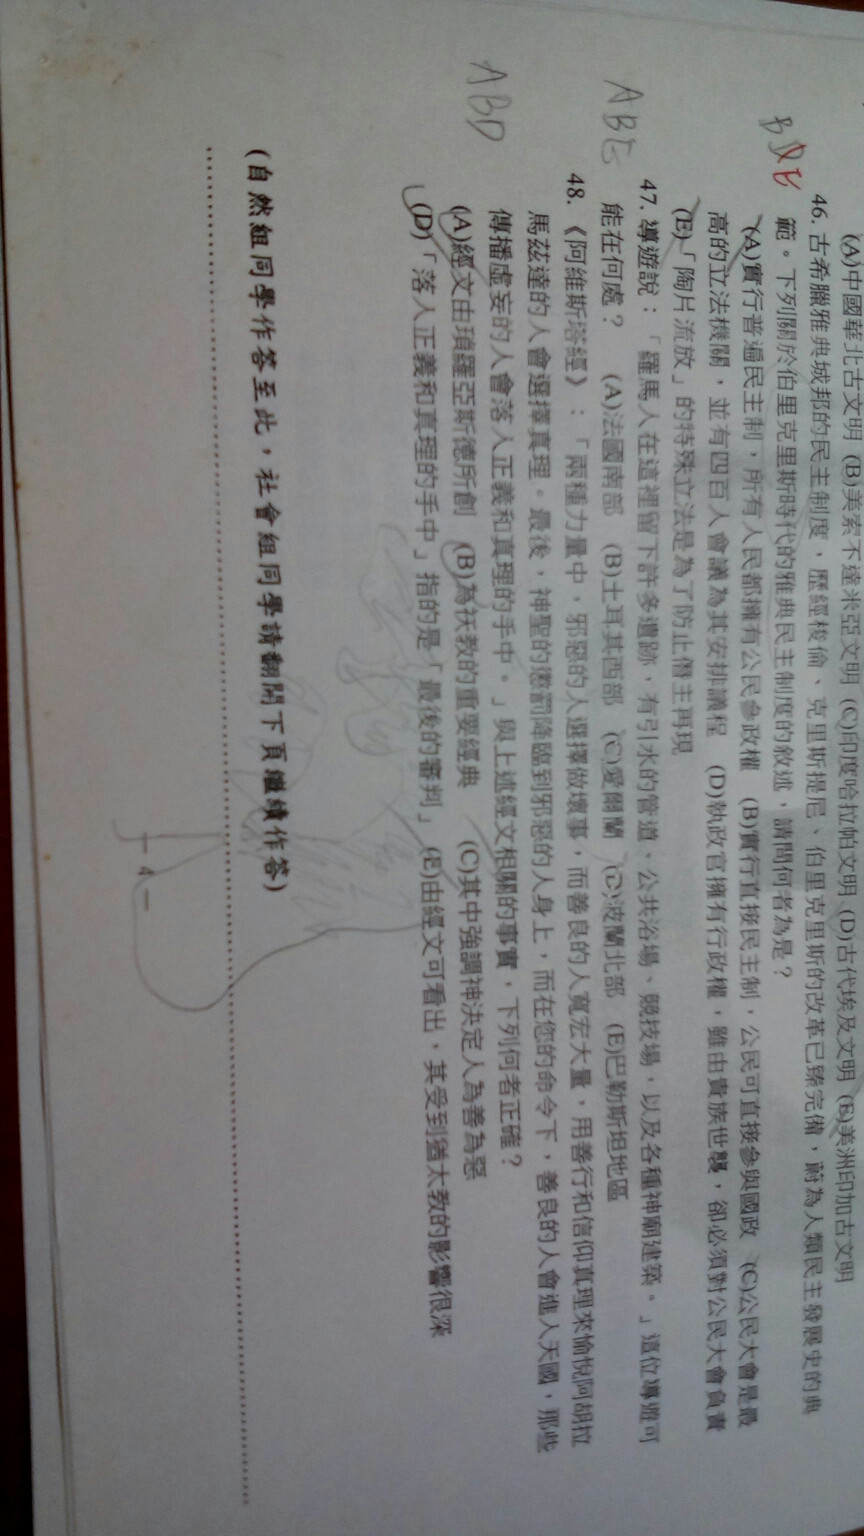 (A)中國華北古文明 (B)美索不達米亞文明 (C)印度哈拉帕文明 (D)古代埃及文明 (E)美洲印加古文明
46. 古希臘雅典城邦的民主制度，歷經梭倫、克里斯提尼、伯里克里斯的改革已臻完備，蔚為人類民主發展史的典
範。下列關於伯里克里斯時代的雅典民主制度的敘述，請問何者為是？
(A)實行普遍民主制，所有人民都擁有公民參政權 (B)實行直接民主制，公民可直接參與國政 (C)公民大會是最
高的立法機關，並有四百人會議為其安排議程 (D)執政官擁有行政權，雖由貴族世襲，卻必須對公民大會負責
(E)「陶片流放」的特殊立法是為了防止僭主再現
BE
47. 導遊說：「羅馬人在這裡留下許多遺跡，有引水的管道、公共浴場、競技場，以及各種神廟建築。」這位導遊可
能在何處？ (A)法國南部 (B)土耳其西部 (C)愛爾蘭 (D)波蘭北部 (E)巴勒斯坦地區
ABE
48. 《阿維斯塔經》：「兩種力量中，邪惡的人選擇做壞事，而善良的人寬宏大量，用善行和信仰真理來愉悅阿胡拉
馬茲達的人會選擇真理。最後，神聖的懲罰降臨到邪惡的人身上，而在您的命令下，善良的人會進入天國，那些
傳播虛妄的人會落入正義和真理的手中。」與上述經文相關的事實，下列何者正確？
(A)經文由瑣羅亞斯德所創 (B)為祆教的重要經典 (C)其中強調神決定人為善為惡
(D)「落入正義和真理的手中」指的是「最後的審判」 (E)由經文可看出，其受到猶太教的影響很深
ABD
(自然組同學作答至此，社會組同學請翻開下頁繼續作答)
— 4 —